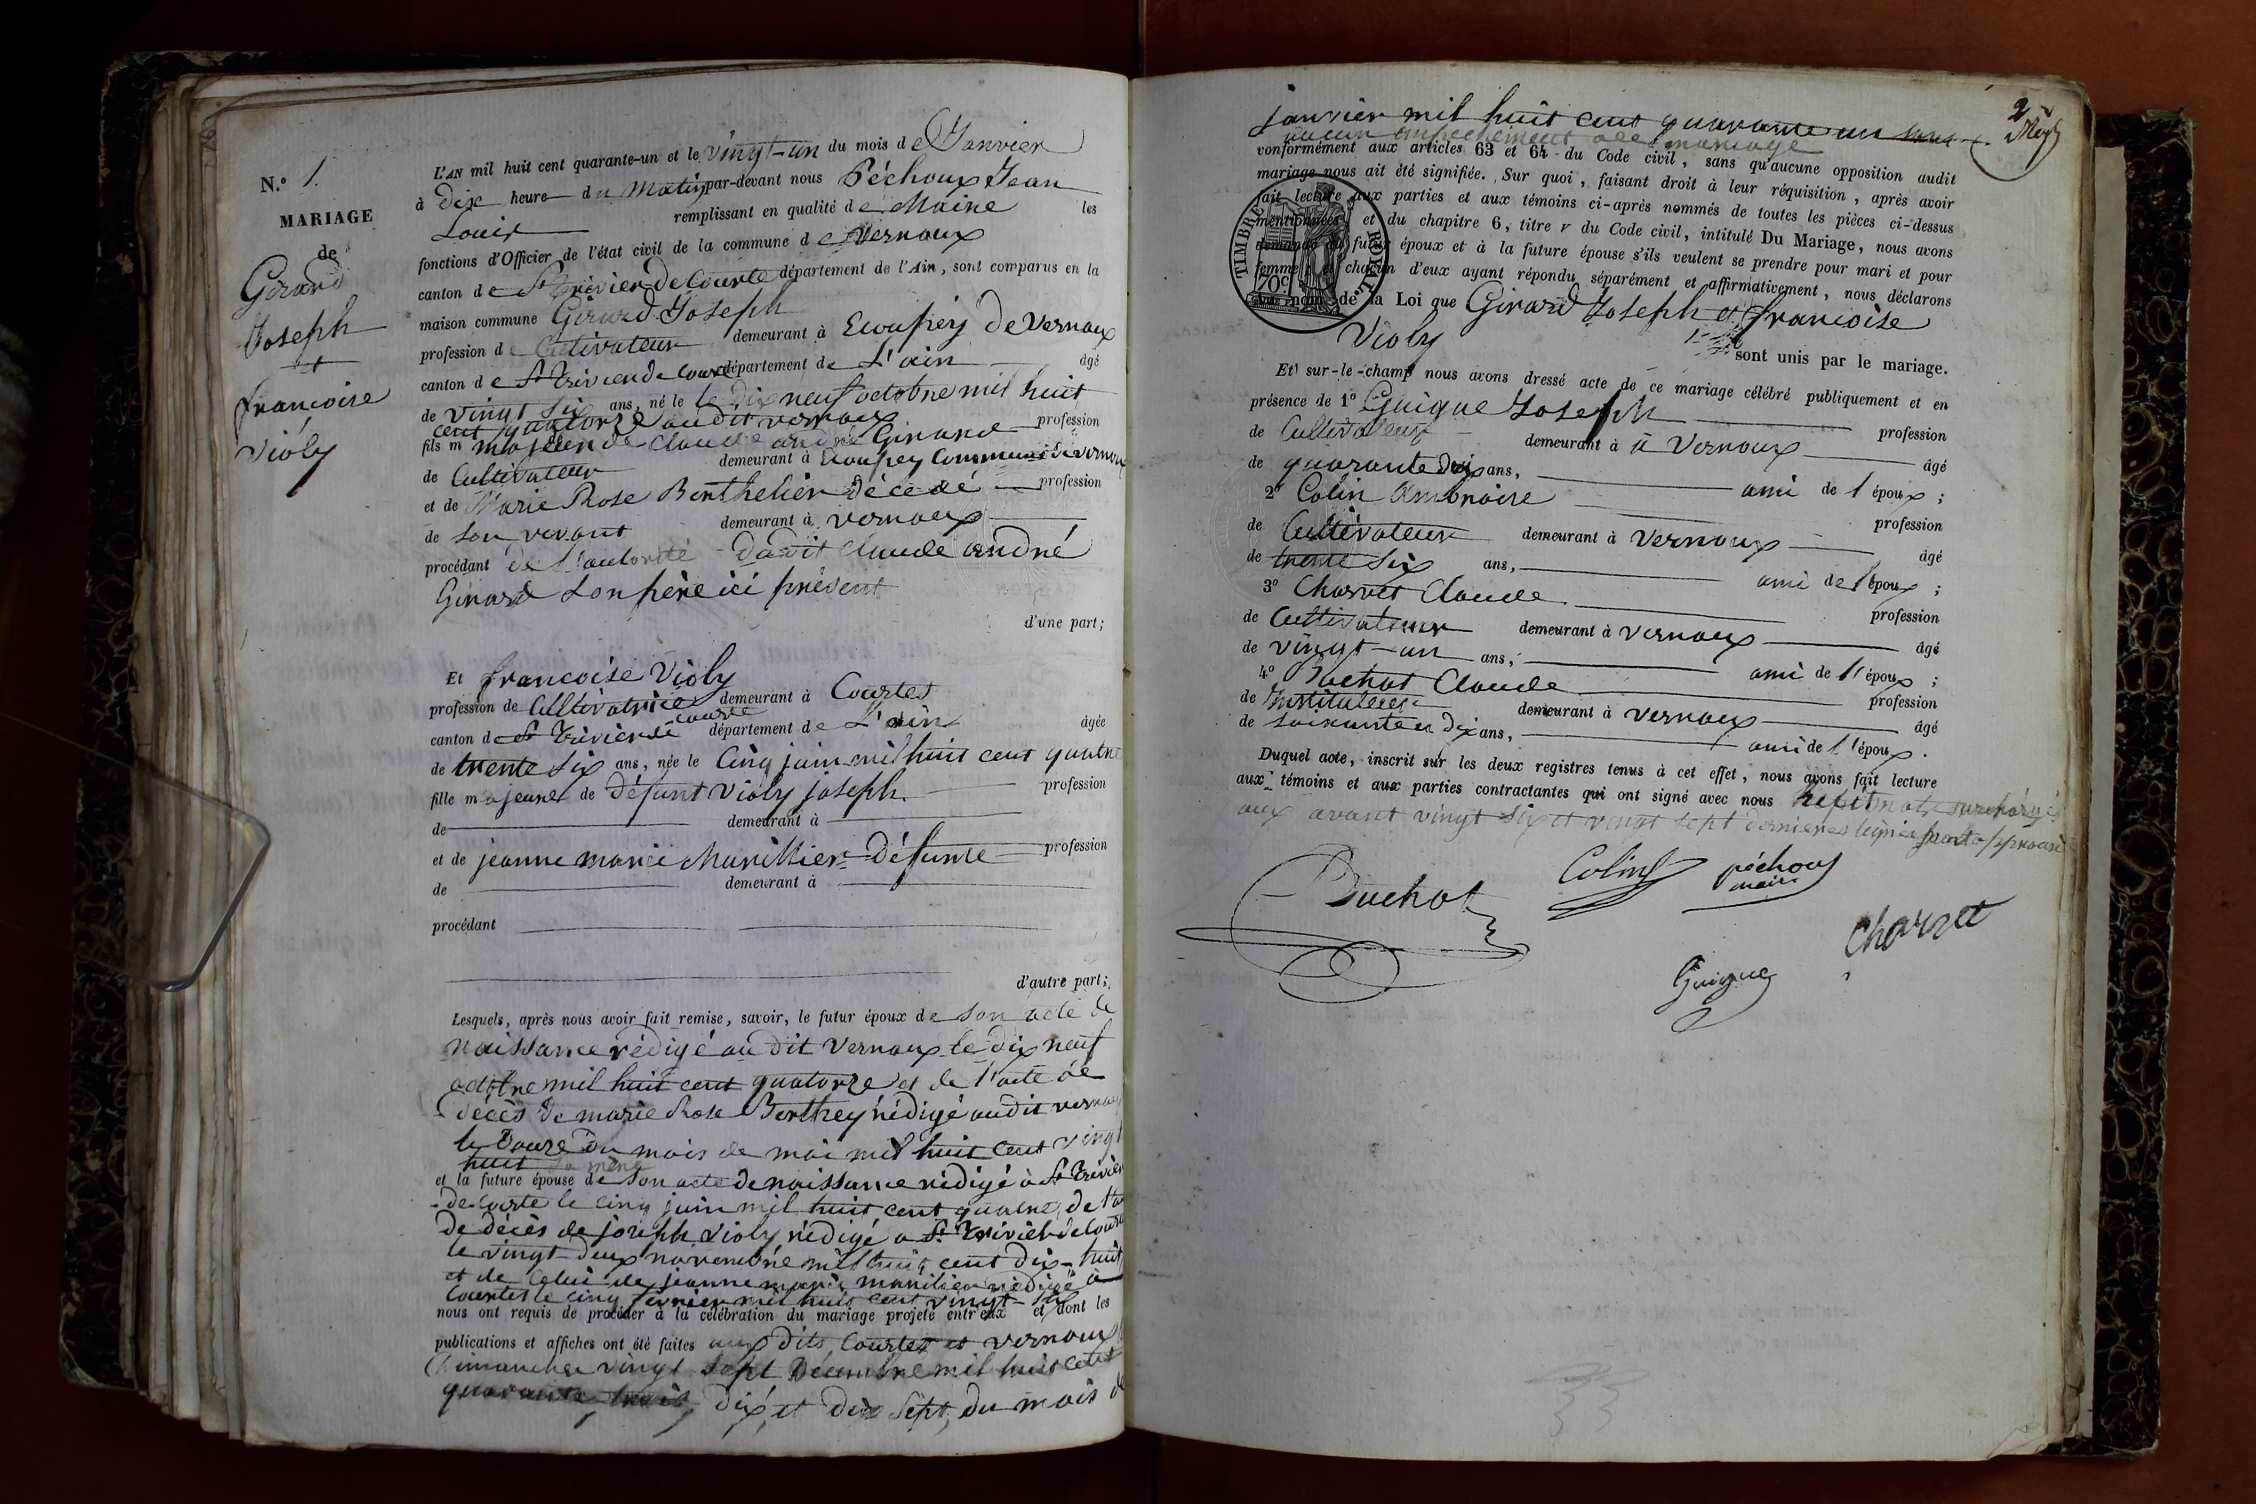 N.º 1.
MARIAGE
de
Girard
Joseph
et
francoise
Violy
L'AN mil huit cent quarante-un et le vingt-un du mois de Janvier
à dix heure du Matin par-devant nous Péchoux Jean
Louis remplissant en qualité de Maire les
fonctions d'Officier de l'état civil de la commune de Vernoux
canton de St Trivier de Courte département de l'Ain, sont comparus en la
maison commune Girard Joseph
profession de Cultivateur demeurant à Ecoupey de Vernoux
canton de St Trivier de Courte département de L'ain âgé
de vingt six ans, né le le dix neuf octobre mil huit
cent quatorze audit vernoux profession
fils majeur de Claude andré Girard
de Cultivateur demeurant à Ecoupey Commune de vernoux
et de Marie Rose Berthelier décédé profession
de son vivant demeurant à vernoux
procédant de l'autorité dudit Claude andré
Girard son père ici présent
d'une part;
Et francoise Violy
profession de Cultivatrice demeurant à Courtes
canton de St Trivier de Courte département de L'ain âgée
de trente six ans, née le Cinq juin mil huit cent quatre
fille majeure de défunt Violy joseph profession
de demeurant à
et de jeanne marie Manillier Défunte profession
de demeurant à
procédant
d'autre part;
Lesquels, après nous avoir fait remise, savoir, le futur époux de son acte de
naissance rédigé au dit vernoux le dix neuf
octobre mil huit cent quatorze et de l'acte de
décès de marie Rose Berthey rédigé audit vernoux
le douze du mois de mai mil huit cent vingt
huit sa mère
et la future épouse de son acte de naissance rédigé à St Trivier
de courte le cinq juin mil huit cent quatre, de l'a
de décès de joseph Violy rédigé a St Trivier de Courte
le vingt deux novembre mil huit cent dix-huit
et de celui de jeanne marie manilier rédigé à
Courtes le cinq fevrier mil huit cent vingt-six
nous ont requis de procéder à la célébration du mariage projeté entr'eux et dont les
publications et affiches ont été faites aux dits Courtes et vernoux
Dimanches vingt sept Décembre mil huit cent
quarante, dix, et dix sept, du mois de
2
janvier mil huit cent quarante un
aucun empechement audit mariage
conformément aux articles 63 et 64 du Code civil, sans qu'aucune opposition audit
mariage nous ait été signifiée. Sur quoi, faisant droit à leur réquisition, après avoir
fait lecture aux parties et aux témoins ci-après nommés de toutes les pièces ci-dessus
mentionnées et du chapitre 6, titre v du Code civil, intitulé Du Mariage, nous avons
demandé au futur époux et à la future épouse s'ils veulent se prendre pour mari et pour
femme; et chacun d'eux ayant répondu séparément et affirmativement, nous déclarons
au nom de la Loi que Girard Joseph et francoise
Violy
sont unis par le mariage.
TIMBRE ROYAL
70c
Et sur-le-champ nous avons dressé acte de ce mariage célébré publiquement et en
présence de 1º Guigue Joseph profession
de Cultivateur demeurant à à Vernoux âgé
de quarante dix ans, ami de l'époux;
2º Colin Ambroise profession
de Cultivateur demeurant à vernoux âgé
de trente six ans, ami de l'époux;
3º Charvet Claude profession
de Cultivateur demeurant à vernoux âgé
de vingt-un ans, ami de l'époux;
4º Buchot Claude profession
de Instituteur demeurant à vernoux âgé
de soixante dix ans, ami de l'époux.
Duquel acte, inscrit sur les deux registres tenus à cet effet, nous avons fait lecture
aux témoins et aux parties contractantes qui ont signé avec nous mots surchargés
aux avant vingt six et vingt sept dernieres lignes
Buchot
Colin
péchoux
maire
Charvet
Guigue